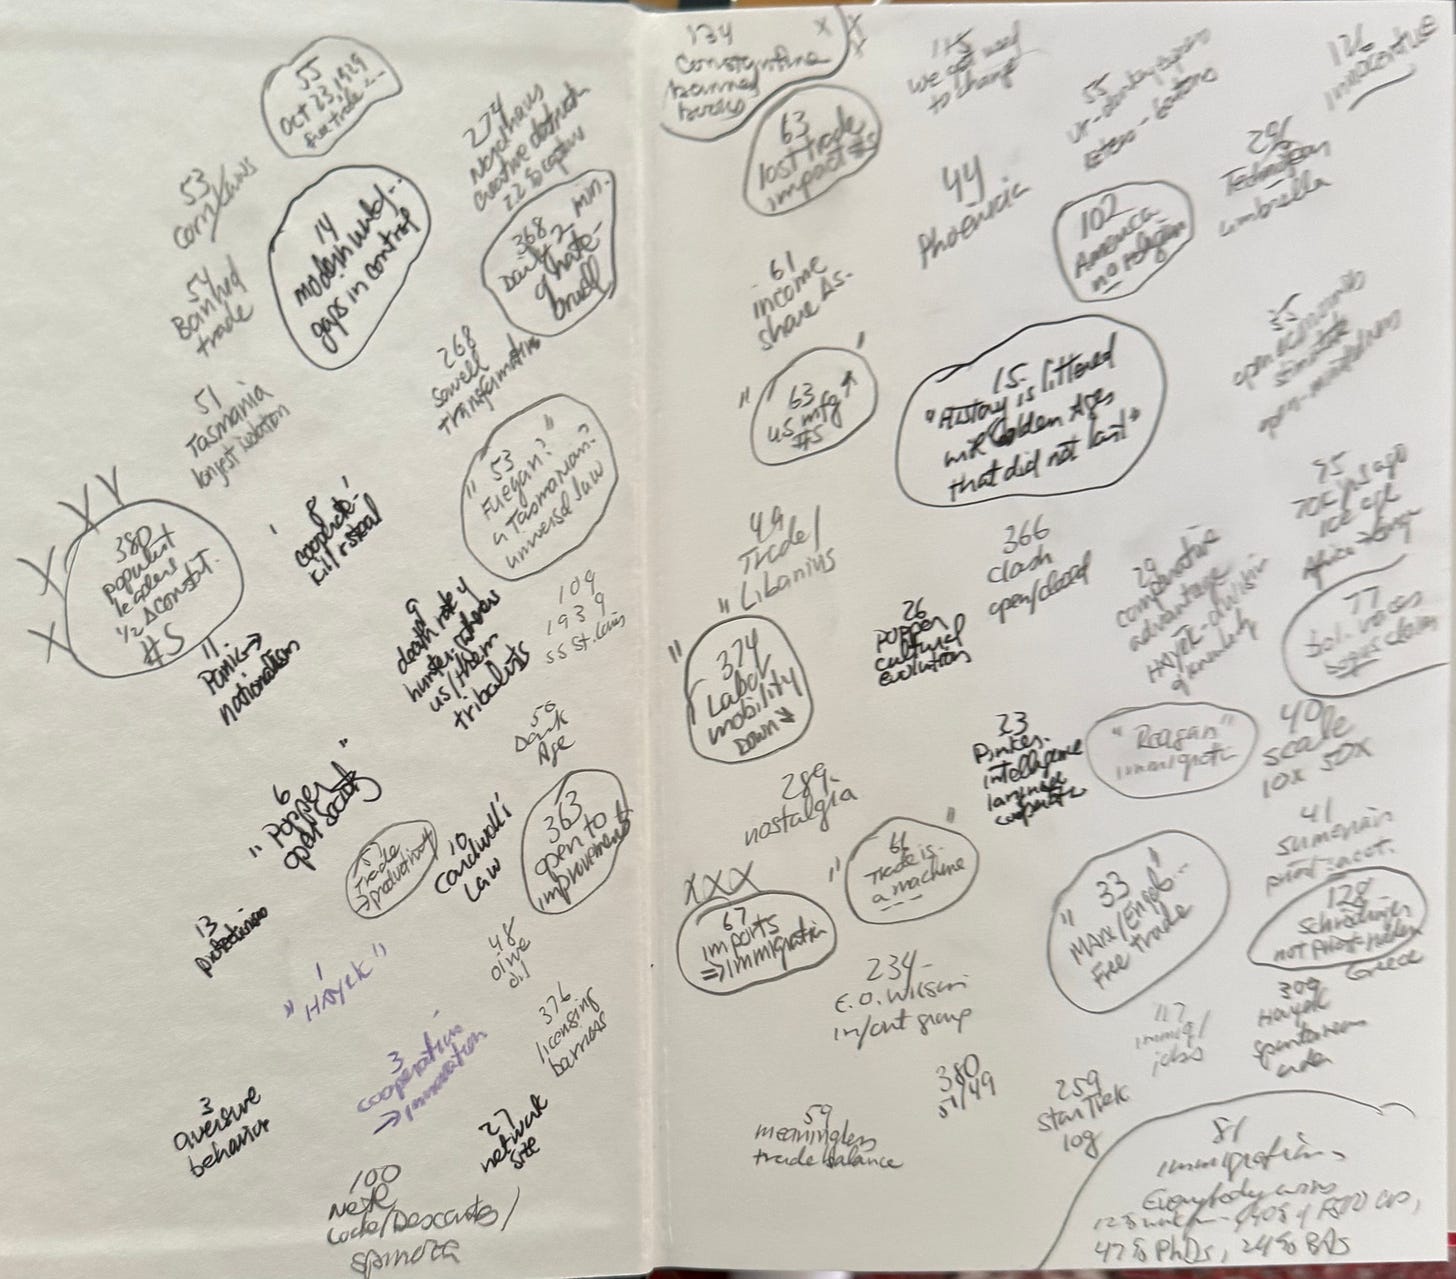 55
Oct 23, 1929
free trade...
53
Corn Laws
274
Nordhaus
creative
54
Banned
trade
14
gaps in control
368
Daily 2 min.
of hate -
51
Tasmania
longest isolation
268
Sowell
transformation
"53
Fuegan?"
Tasmanian?
universal law
380
populist
leaders
1/2 Δ Constit.
#s
8
cooperate -
kill / steal
11
Panic →
nationalism
9
death rate
hunter-gatherers
us/them
tribalists
109
1939
SS St. Louis
50
Dark
Age
6
"Popper"
open society
57
Trade
→ productivity
10
Cardwell's
Law
363
open to
improvement
13
protectionism
48
olive
oil
1
"HAYEK"
376
licensing
barriers
3
cooperation
→ innovation
3
aversive
behavior
27
network
size
100
Locke/Descartes/
Spinoza
134
Constantine
banned
books
63
lost trade
impact #s
115
we
to change
55
126
44
Phoenicia
102
America
no religion
296
umbrella
61
income
share Δs.
"63"
U.S. mfg ↑
#s
15
"History is littered
with Golden Ages
that did not last"
35
open
open-mindedness
49
Trade/
Libanius
366
clash
open/closed
29
comparative
advantage
HAYEK -
75
70K yrs ago
ice age
Africa →
77
bogus claim
"374
Labor
mobility
Down ↓
26
Popper
cultural
evolution
23
Pinker -
intelligence
language
cooperation
"Reagan"
immigration
40
scale
10x 50x
289 -
nostalgia
"66"
Trade is
a machine
41
Sumerian
67
imports
⇒ immigration
33
"Marx/Engels...
Free trade
128
Schrodinger
not
Greece
234 -
E.O. Wilson
in/out group
117
immig/
jobs
309
Hayek
spontaneous
order
380
51/49
259
Star Trek
log
59
meaningless
trade balance
81
immigration
Everybody wins
47% PhDs, 24% BAs